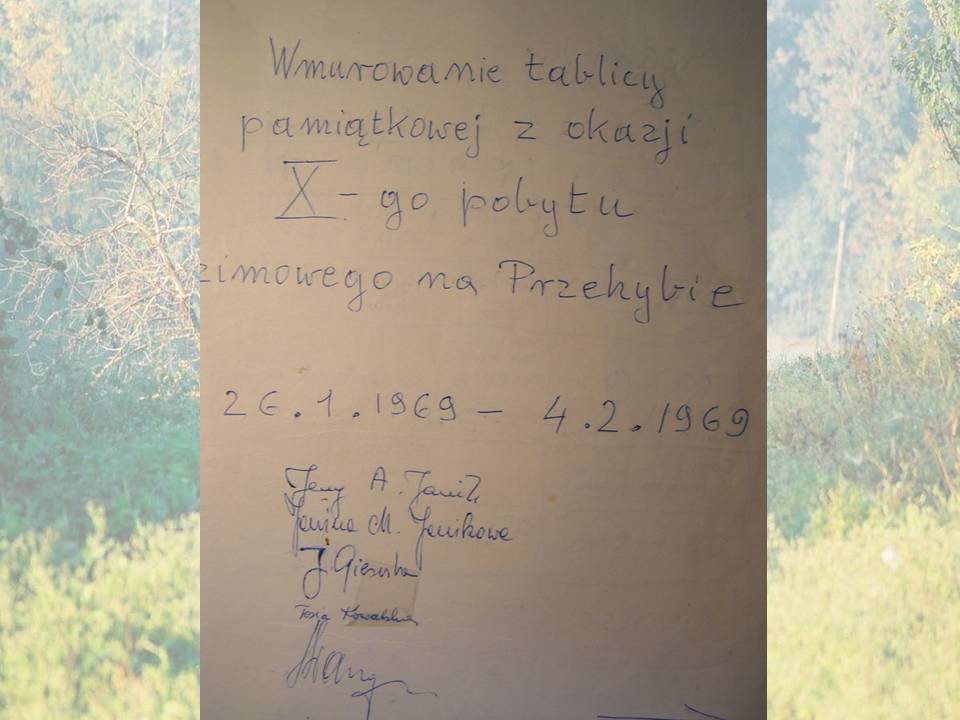 Wmurowanie tablicy
pamiątkowej z okazji
X-go pobytu
zimowego na Przehybie
26.1.1969 – 4.2.1969
Jerzy A. Janik
Janina M. Janikowa
J.
Tosia Kowalska